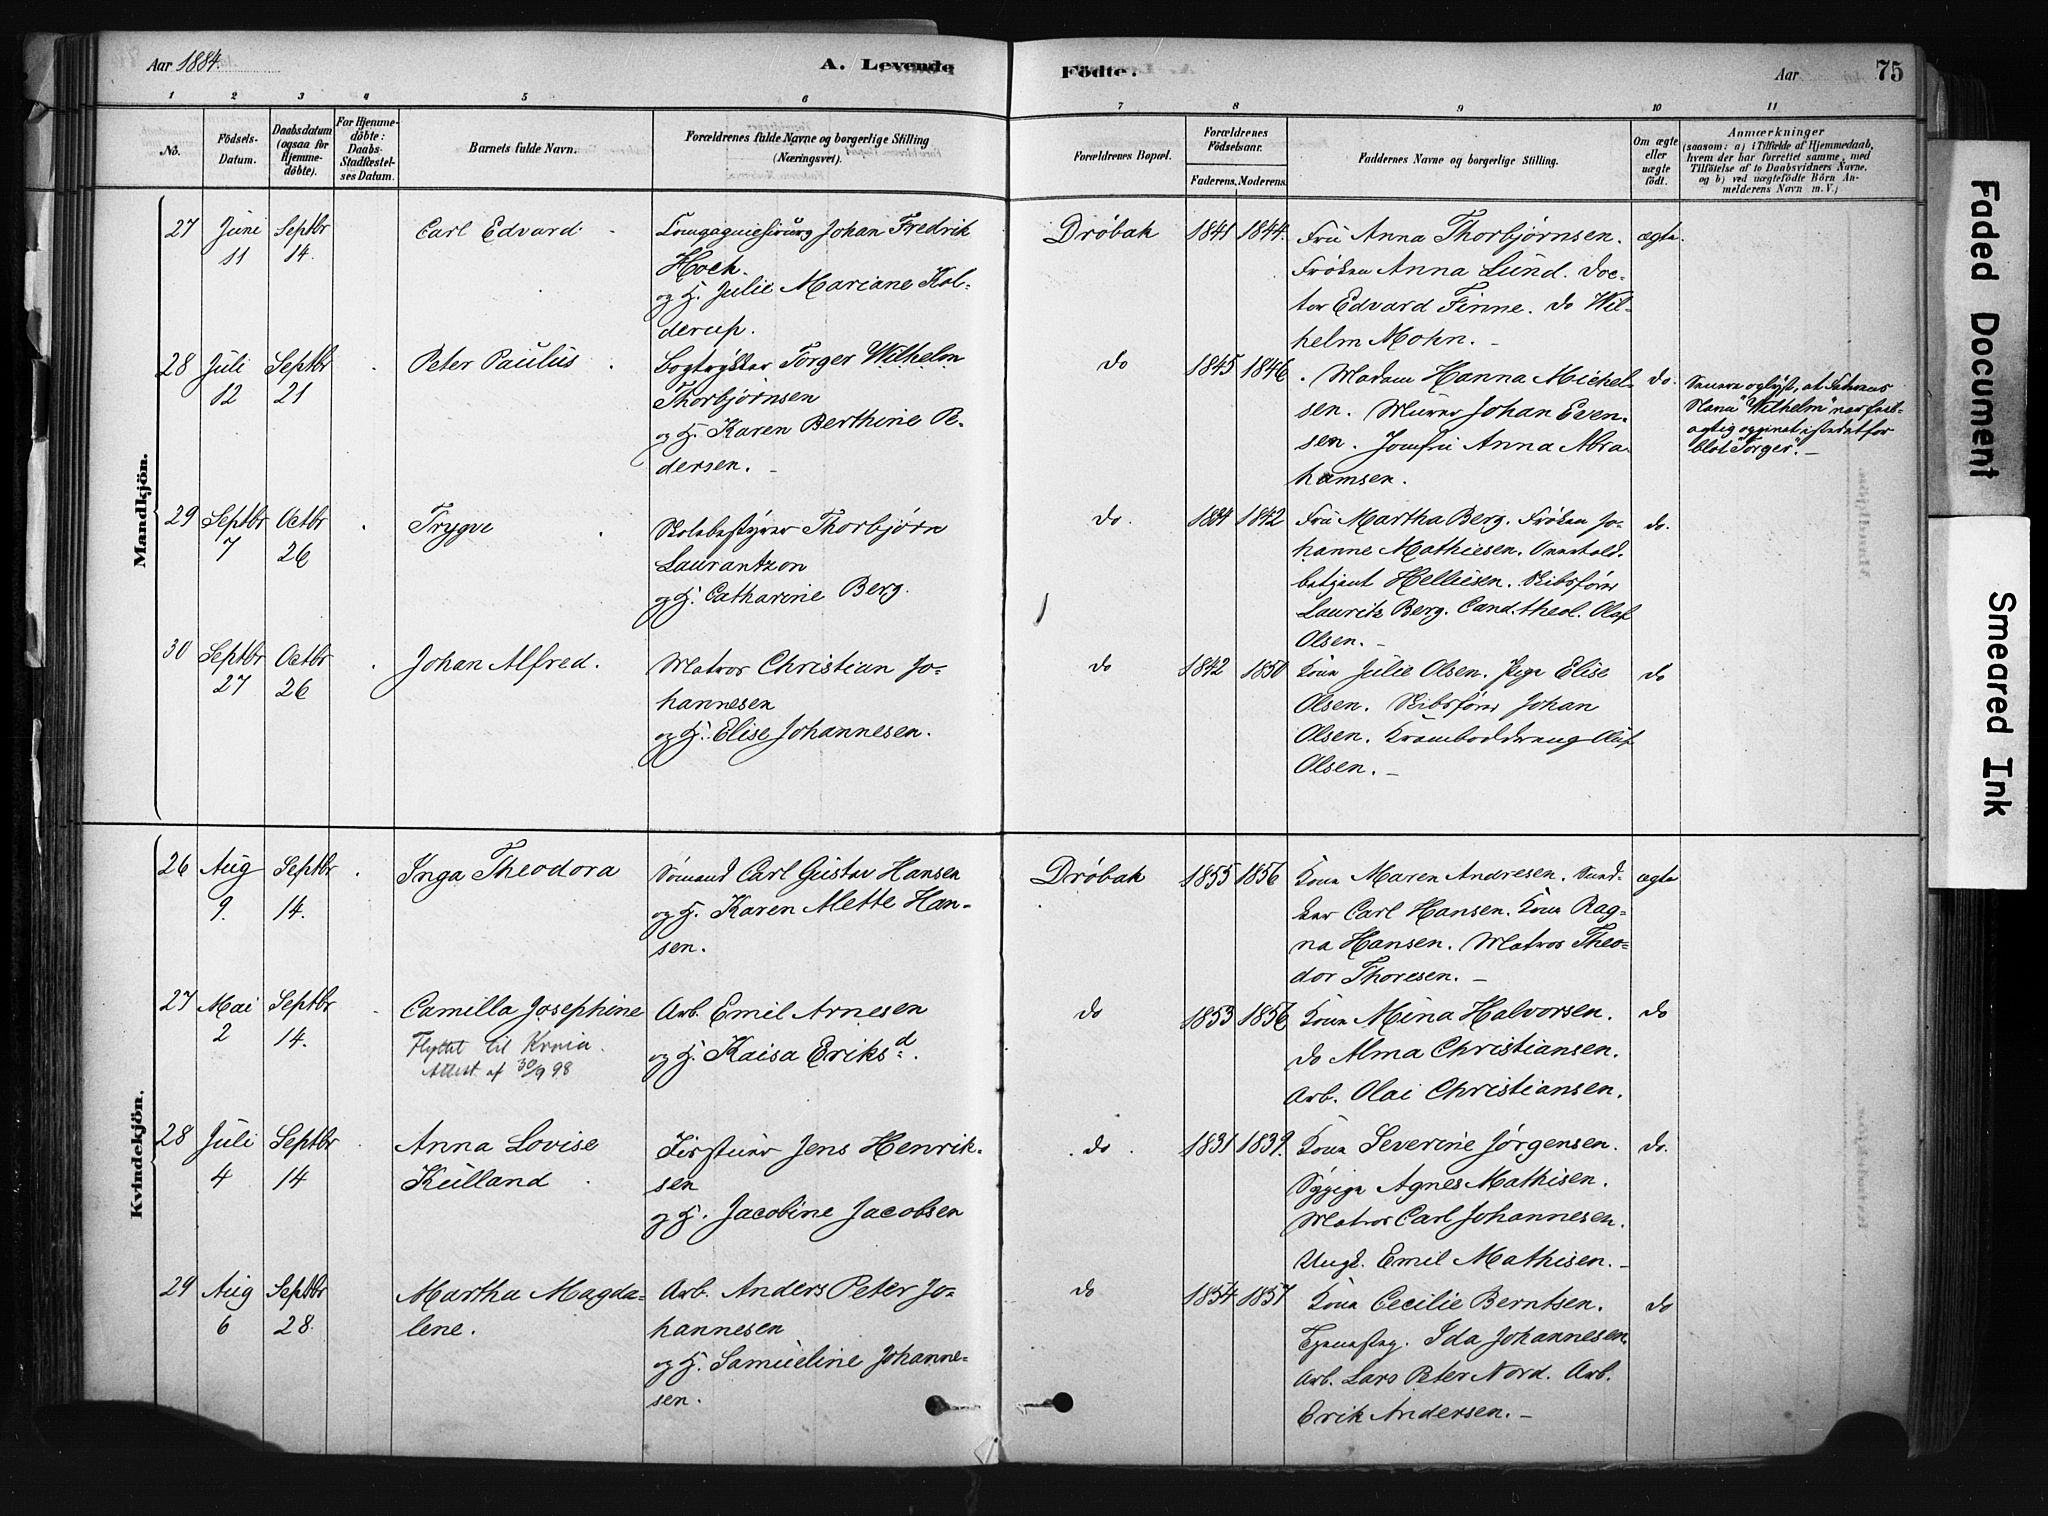 Aar 1884.
A. Levende Födte.
Aar
75
1 2 3 4 5 6 7 8 9 10 11
No.
Födsels-
Datum.
Daabsdatum
(ogsaa for
Hjemme-
döbte).
For Hjemme-
döbte:
Daabs-
Stadfæstel-
ses Datum.
Barnets fulde Navn.
Forældrenes fulde Navne og borgerlige Stilling
(Næringsvei).
Forældrenes Bopæl.
Forældrenes
Födselsaar.
Faderens. Moderens.
Faddernes Navne og borgerlige Stilling.
Om ægte
eller
uægte
födt.
Anmærkninger
(saasom: a) i Tilfælde af Hjemmedaab,
hvem der har forrettet samme, med
Tilföielse af to Daabsvidners Navne,
og b) ved uægtefödte Börn An-
melderens Navn m. V.)
Mandkjön.
27
Juni
11
Septbr
14.
Carl Edvard
Compagniechirurg Johan Fredrik
Hoch.
og H. Julie Mariane Kol-
derup.
Drøbak
1841
1844.
Fru Anna Thorbjørnsen.
Frøken Anna Lund. Doc-
tor Edvard Finne. do Wil-
helm Mohn.
ægte.
28
Juli
12
Septbr
21
Peter Paulus
Bogtrykker Torger Wilhelm
Thorbjørnsen
og H. Karen Berthine Pe-
dersen.
do
1845
1846
Madam Hanna Michel-
sen. Murer Johan Even-
sen. Jomfru Anna Abra-
hamsen.
do.
Senere oplyst, at Faderens
Navn "Wilhelm" var feil-
agtig opgivet istedetfor
blot "Torger".
29
Septbr
7
Octbr
26
Trygve
Skolebestyrer Thorbjørn
Laurantzon
og H. Catharine Berg.
do.
1834
1842
Fru Martha Berg. Frøken Jo-
hanne Mathiesen.
betjent Helliesen. Skibsfører
Lauritz Berg. Cand. theol. Olaf
Olsen.
do.
30
Septbr
27
Octbr
26
Johan Alfred.
Matros Christian Jo-
hannesen
og H. Elise Johannesen.
do
1842
1850
Kone Julie Olsen. Pige Elise
Olsen. Skibsfører Johan
Olsen. Kramboddreng Oluf
Olsen.
do
Kvindekjön.
26
Aug
9.
Septbr
14.
Inga Theodora
Sømand Carl Gustav Hansen
og H. Karen Mette Han-
sen.
Drøbak
1855
1856
Kone Maren Andresen. Sned-
ker Carl Hansen. Kone Rag-
na Hansen. Matros Theo-
dor Thoresen.
ægte
27
Mai
2
Septbr
14.
Camilla Josephine
Flyttet til Krnia.
Attest af 30/9 98
Arb. Emil Arnesen
og H. Kaisa Eriksd.
do
1853
1856
Kone Mina Halvorsen.
do Alma Christiansen.
Arb. Olai Christiansen.
do
28
Juli
4
Septbr
14
Anna Lovise
Külland
Jens Henrik-
sen
og H. Jacobine Jacobsen
do
1831
1839.
Kone Severine Jørgensen.
Sypige Agnes Mathisen.
Matros Carl Johannesen.
Ungk. Emil Mathisen.
do.
29
Aug
6
Septbr
28.
Martha Magda-
lene.
Arb. Anders Peter Jo-
hannesen
og H. Samueline Johanne-
sen.
do
1854
1857
Kone Cecilie Berntsen.
Tjenestep. Ida Johannesen.
Arb. Lars Peter Nord. Arb.
Erik Andersen.
do
Faded Document
Smeared Ink